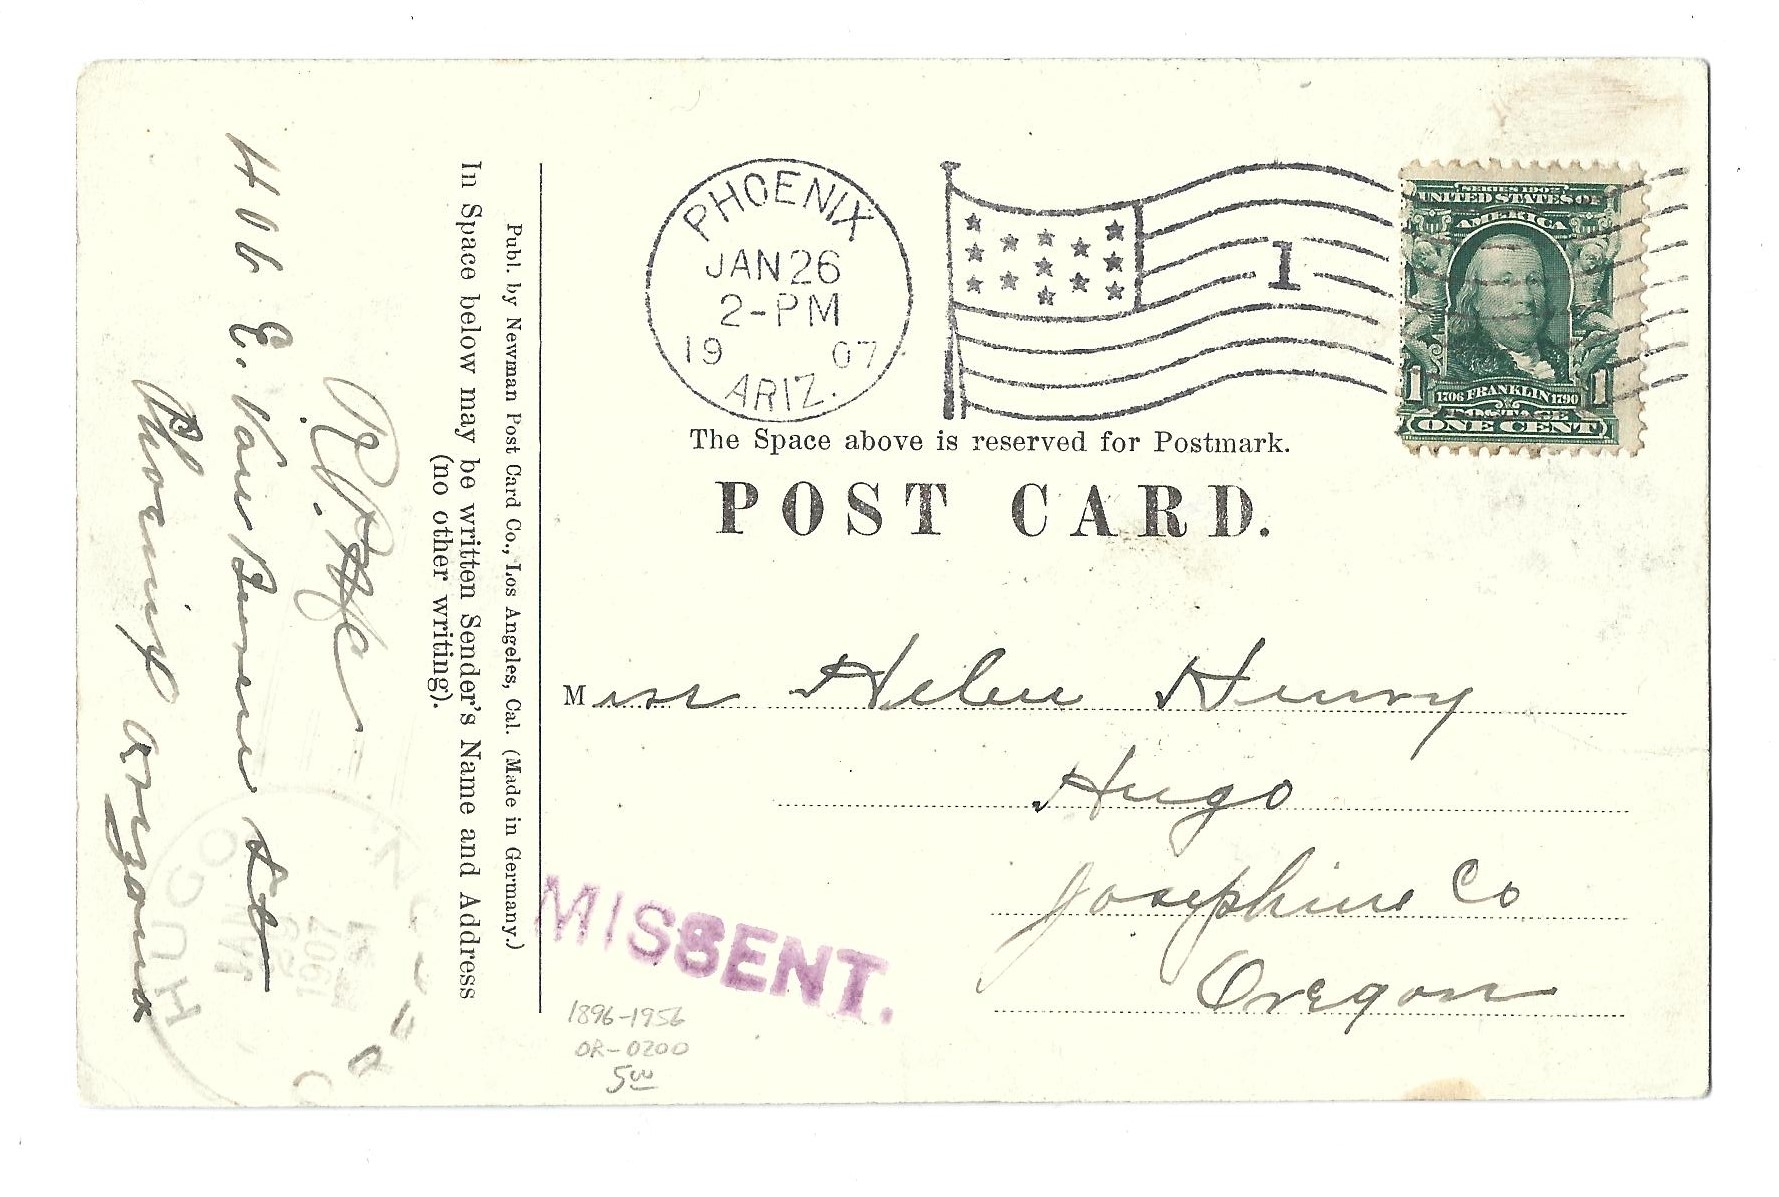 PHOENIX
JAN 26
2-PM
19 07
ARIZ.
1
SERIES 1902
UNITED STATES OF
AMERICA
1 1706 FRANKLIN 1790 1
POSTAGE
ONE CENT
The Space above is reserved for Postmark.
POST CARD.
Miss Helen Henry
Hugo
Josephine Co
Oregon
MISSENT.
1896-1956
OR-0200
5.00
Publ. by Newman Post Card Co., Los Angeles, Cal. (Made in Germany.)
In Space below may be written Sender's Name and Address
(no other writing).
406 E. Van Buren St
Phoenix Arizona
HUGO
JAN
29
1907